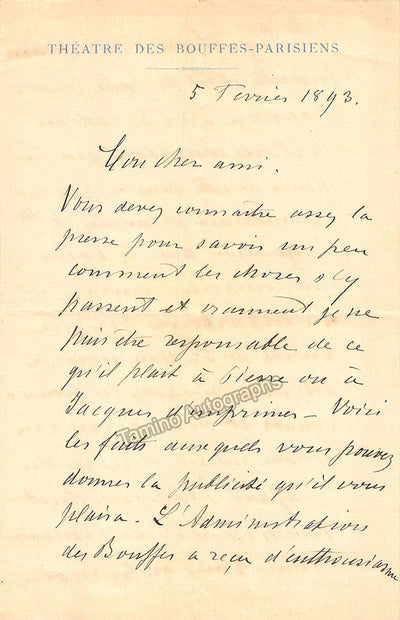 THÉATRE DES BOUFFES-PARISIENS
5 Février 1893.
Mon cher ami.
Vous devez connaître assez la
presse pour savoir un peu
comment les choses s'y
passent et vraiment je ne
puis être responsable de ce
qu'il plait à Pierre ou à
Jacques d'imprimer – Voici
les faits auxquels vous pouvez
donner la publicité qu'il vous
plaira. L'Administration
des Bouffes a reçu d'enthousiasme
Tamino Autographs